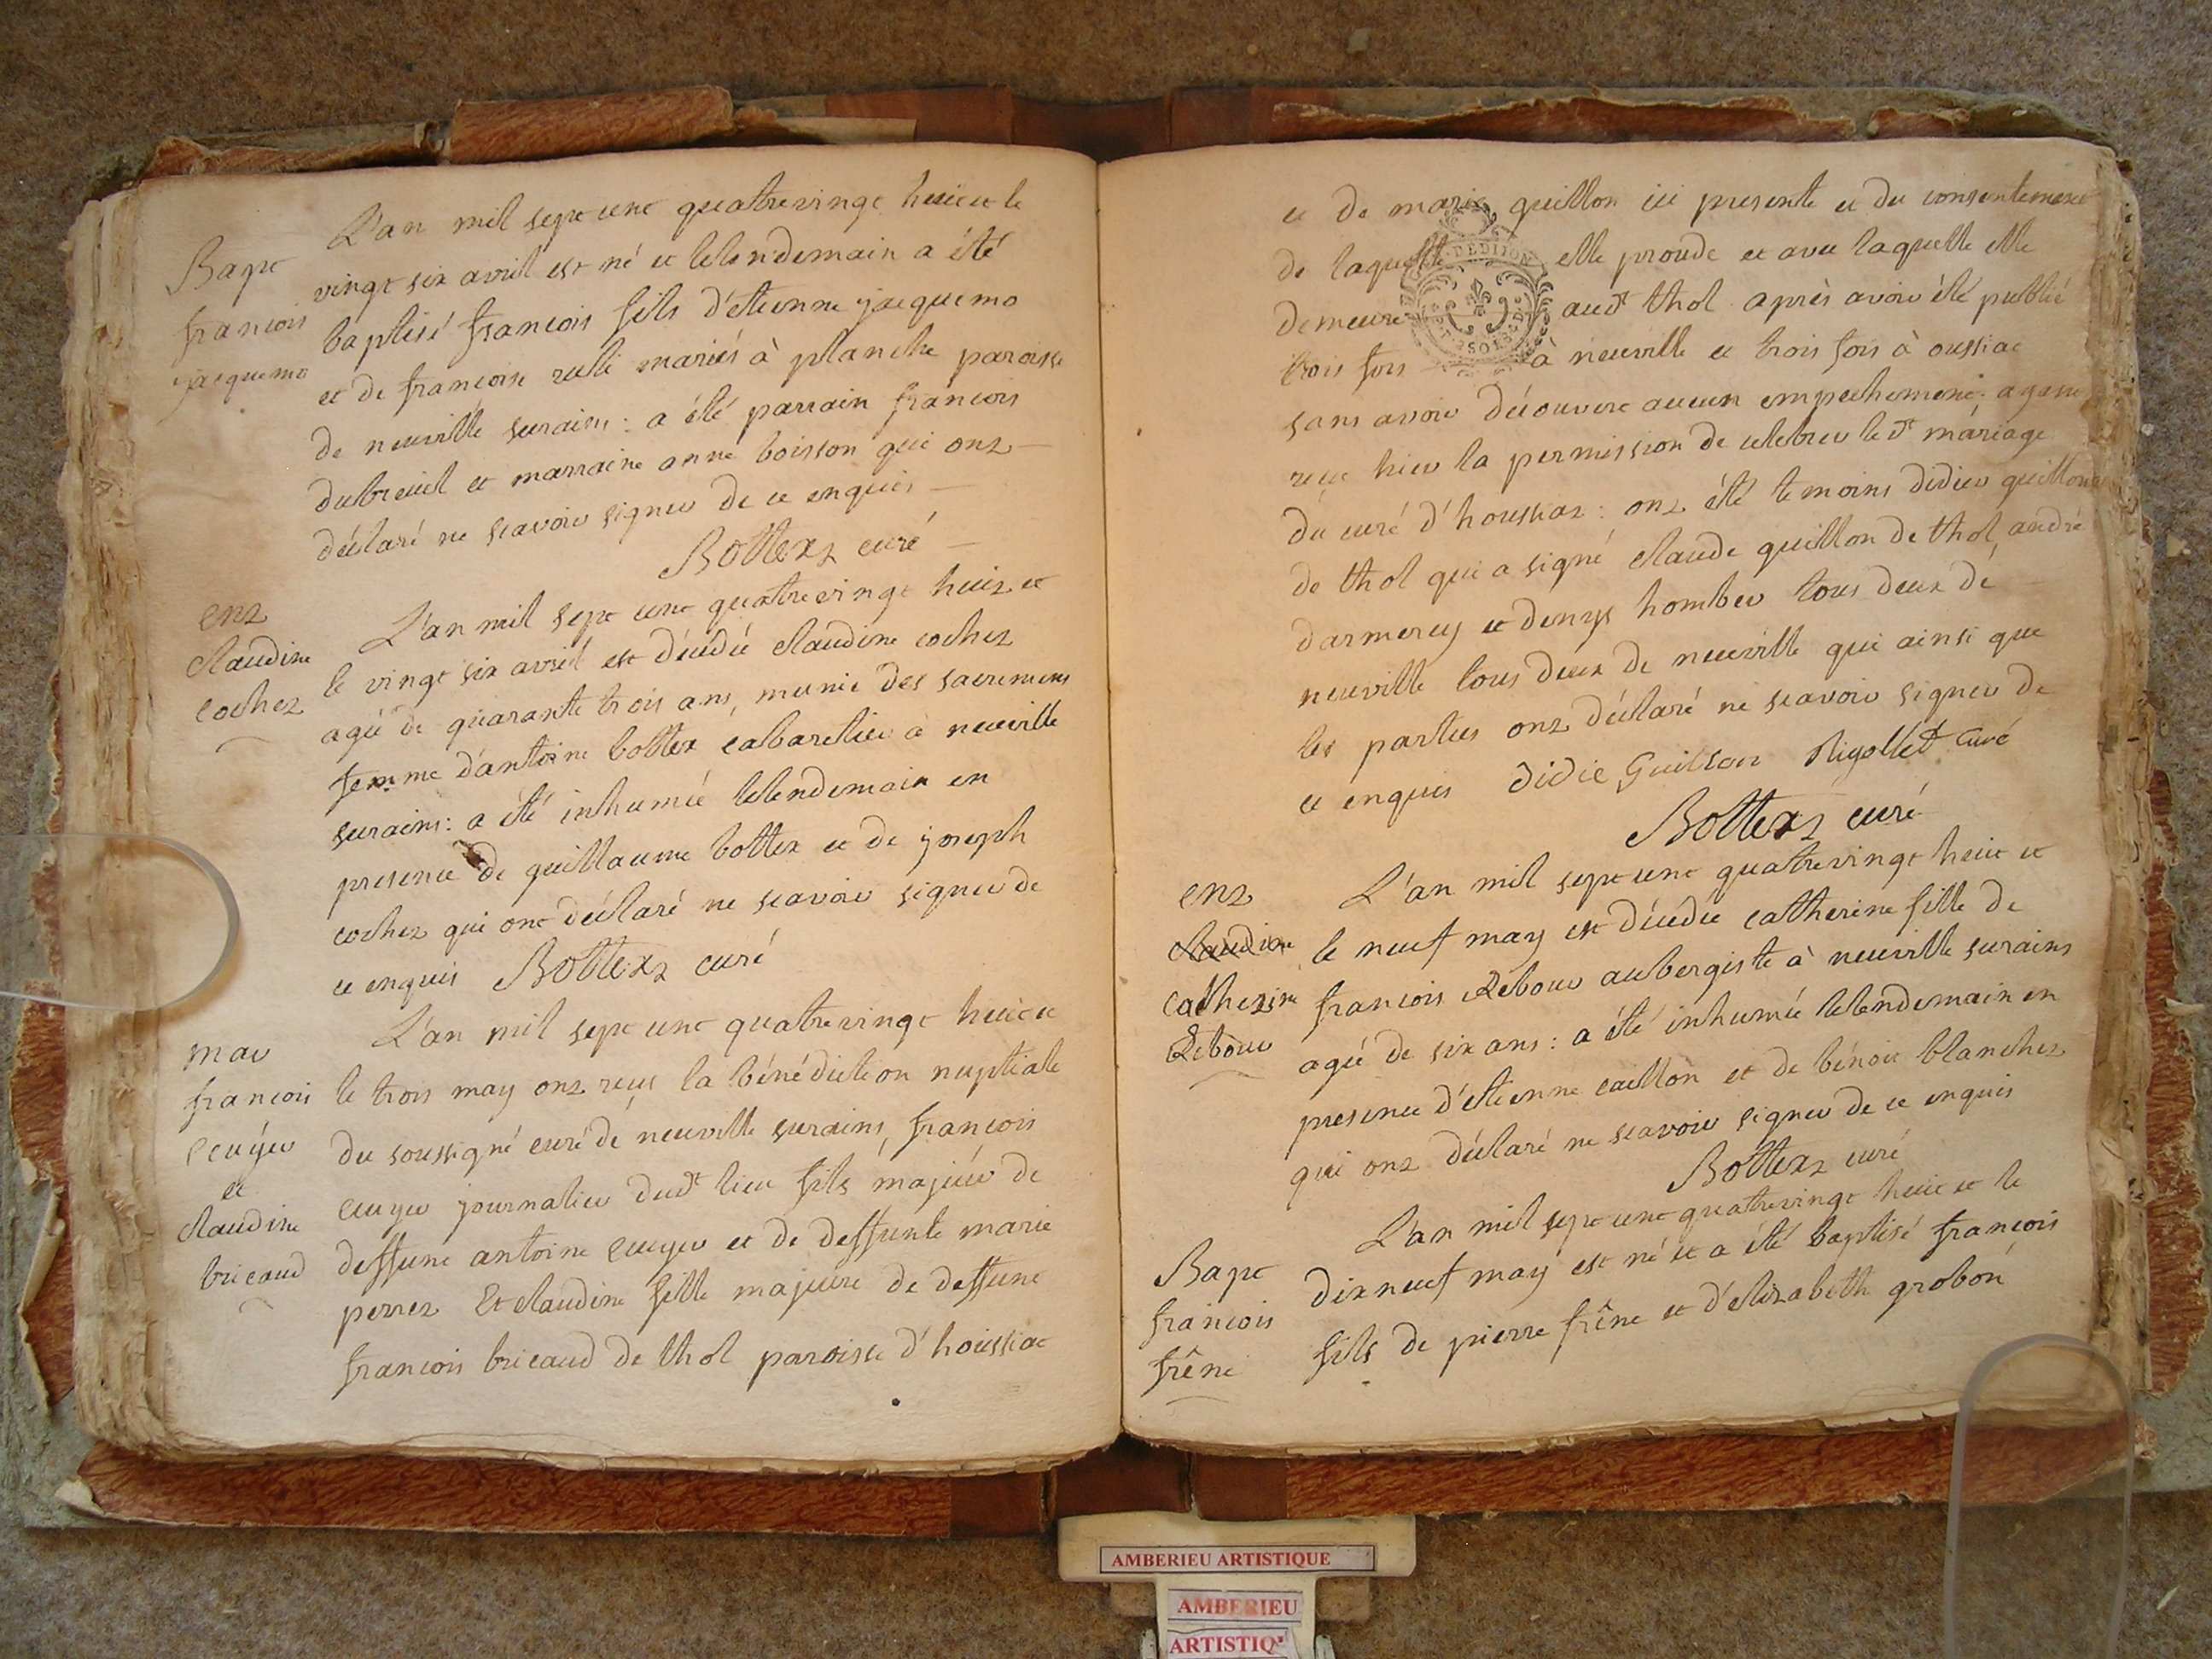 Bapt
francois
jacquemo
L'an mil sept cent quatrevingt huit et le
vingt six avril est né et lelendemain a été
baptisé francois fils d'etienne jacquemo
et de francoise mariés à planche paroisse
de neuville surains: a été parrain francois
dubreuil et marraine anne boisson qui ont
déclaré ne scavoir signer de ce enquis
Bottex curé
ent
claudine
cochet
L'an mil sept cent quatrevingt huit et
le vingt six avril est décédée claudine cochet
agée de quarante trois ans, munie des sacremens
femme d'antoine bottex cabaretier à neuville
surains: a été inhumée lelendemain en
presence de guillaume bottex et de joseph
cochet qui ont déclaré ne scavoir signer de
ce enquis Bottex curé
mar
francois
ecuyer
et
claudine
bricaud
L'an mil sept cent quatrevingt huit et
le trois may ont reçu la bénédiction nuptiale
du soussigné curé de neuville surains, francois
ecuyer journalier dudt lieu fils majeur de
deffunt antoine ecuyer et de deffunte marie
perret Et claudine fille majeure de deffunt
francois bricaud de thol paroisse d'houssiat
et de marie guillon ici presente et du consentement
de laquelle elle procede et avec laquelle elle
demeure audt thol après avoir été publié
trois fois à neuville et trois fois à oussiat
sans avoir découvert aucun empechement; ayant
reçu hier la permission de celebrer ledt mariage
du curé d'houssiat: ont été temoins didier guillon
de thol qui a signé claude guillon de thol, andré
darmercy et denys homber tous deux de
neuville tous deux de neuville qui ainsi que
les parties ont déclaré ne scavoir signer de
ce enquis didie Guillon Rigollet curé
Bottex curé
ent
claudine
catherine
Rebour
L'an mil sept cent quatrevingt huit et
le neuf may est décédée catherine fille de
francois Rebour aubergiste à neuville surains
agée de six ans: a été inhumée lelendemain en
presence d'étienne caillon et de bénoit blanchet
qui ont déclaré ne scavoir signer de ce enquis
Bottex curé
Bapt
francois
frêne
L'an mil sept cent quatrevingt huit et le
dixneuf may est né et a été baptisé francois
fils de pierre frêne et d'elizabeth grobon
AMBERIEU ARTISTIQUE
AMBERIEU
ARTISTIQ